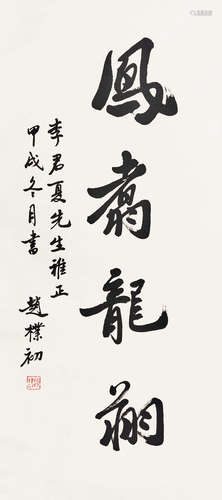 鳳翥龍翔
李君夏先生雅正
甲戌冬月書
趙樸初